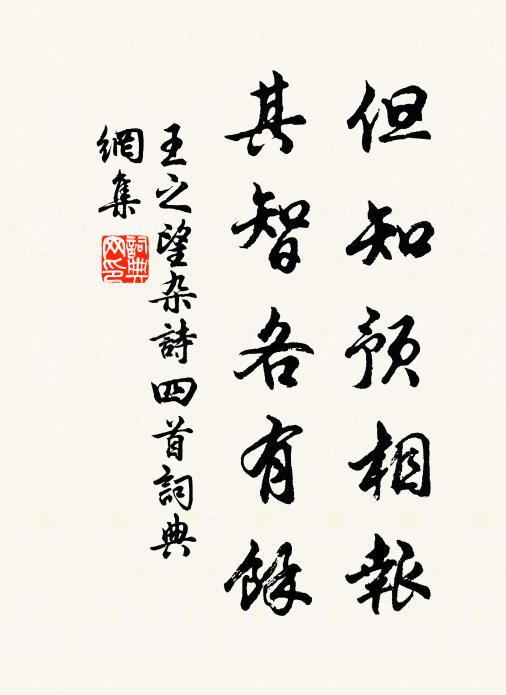 但知預相報
其智各有餘
王之望杂詩四首詞典
網集
詞典网印